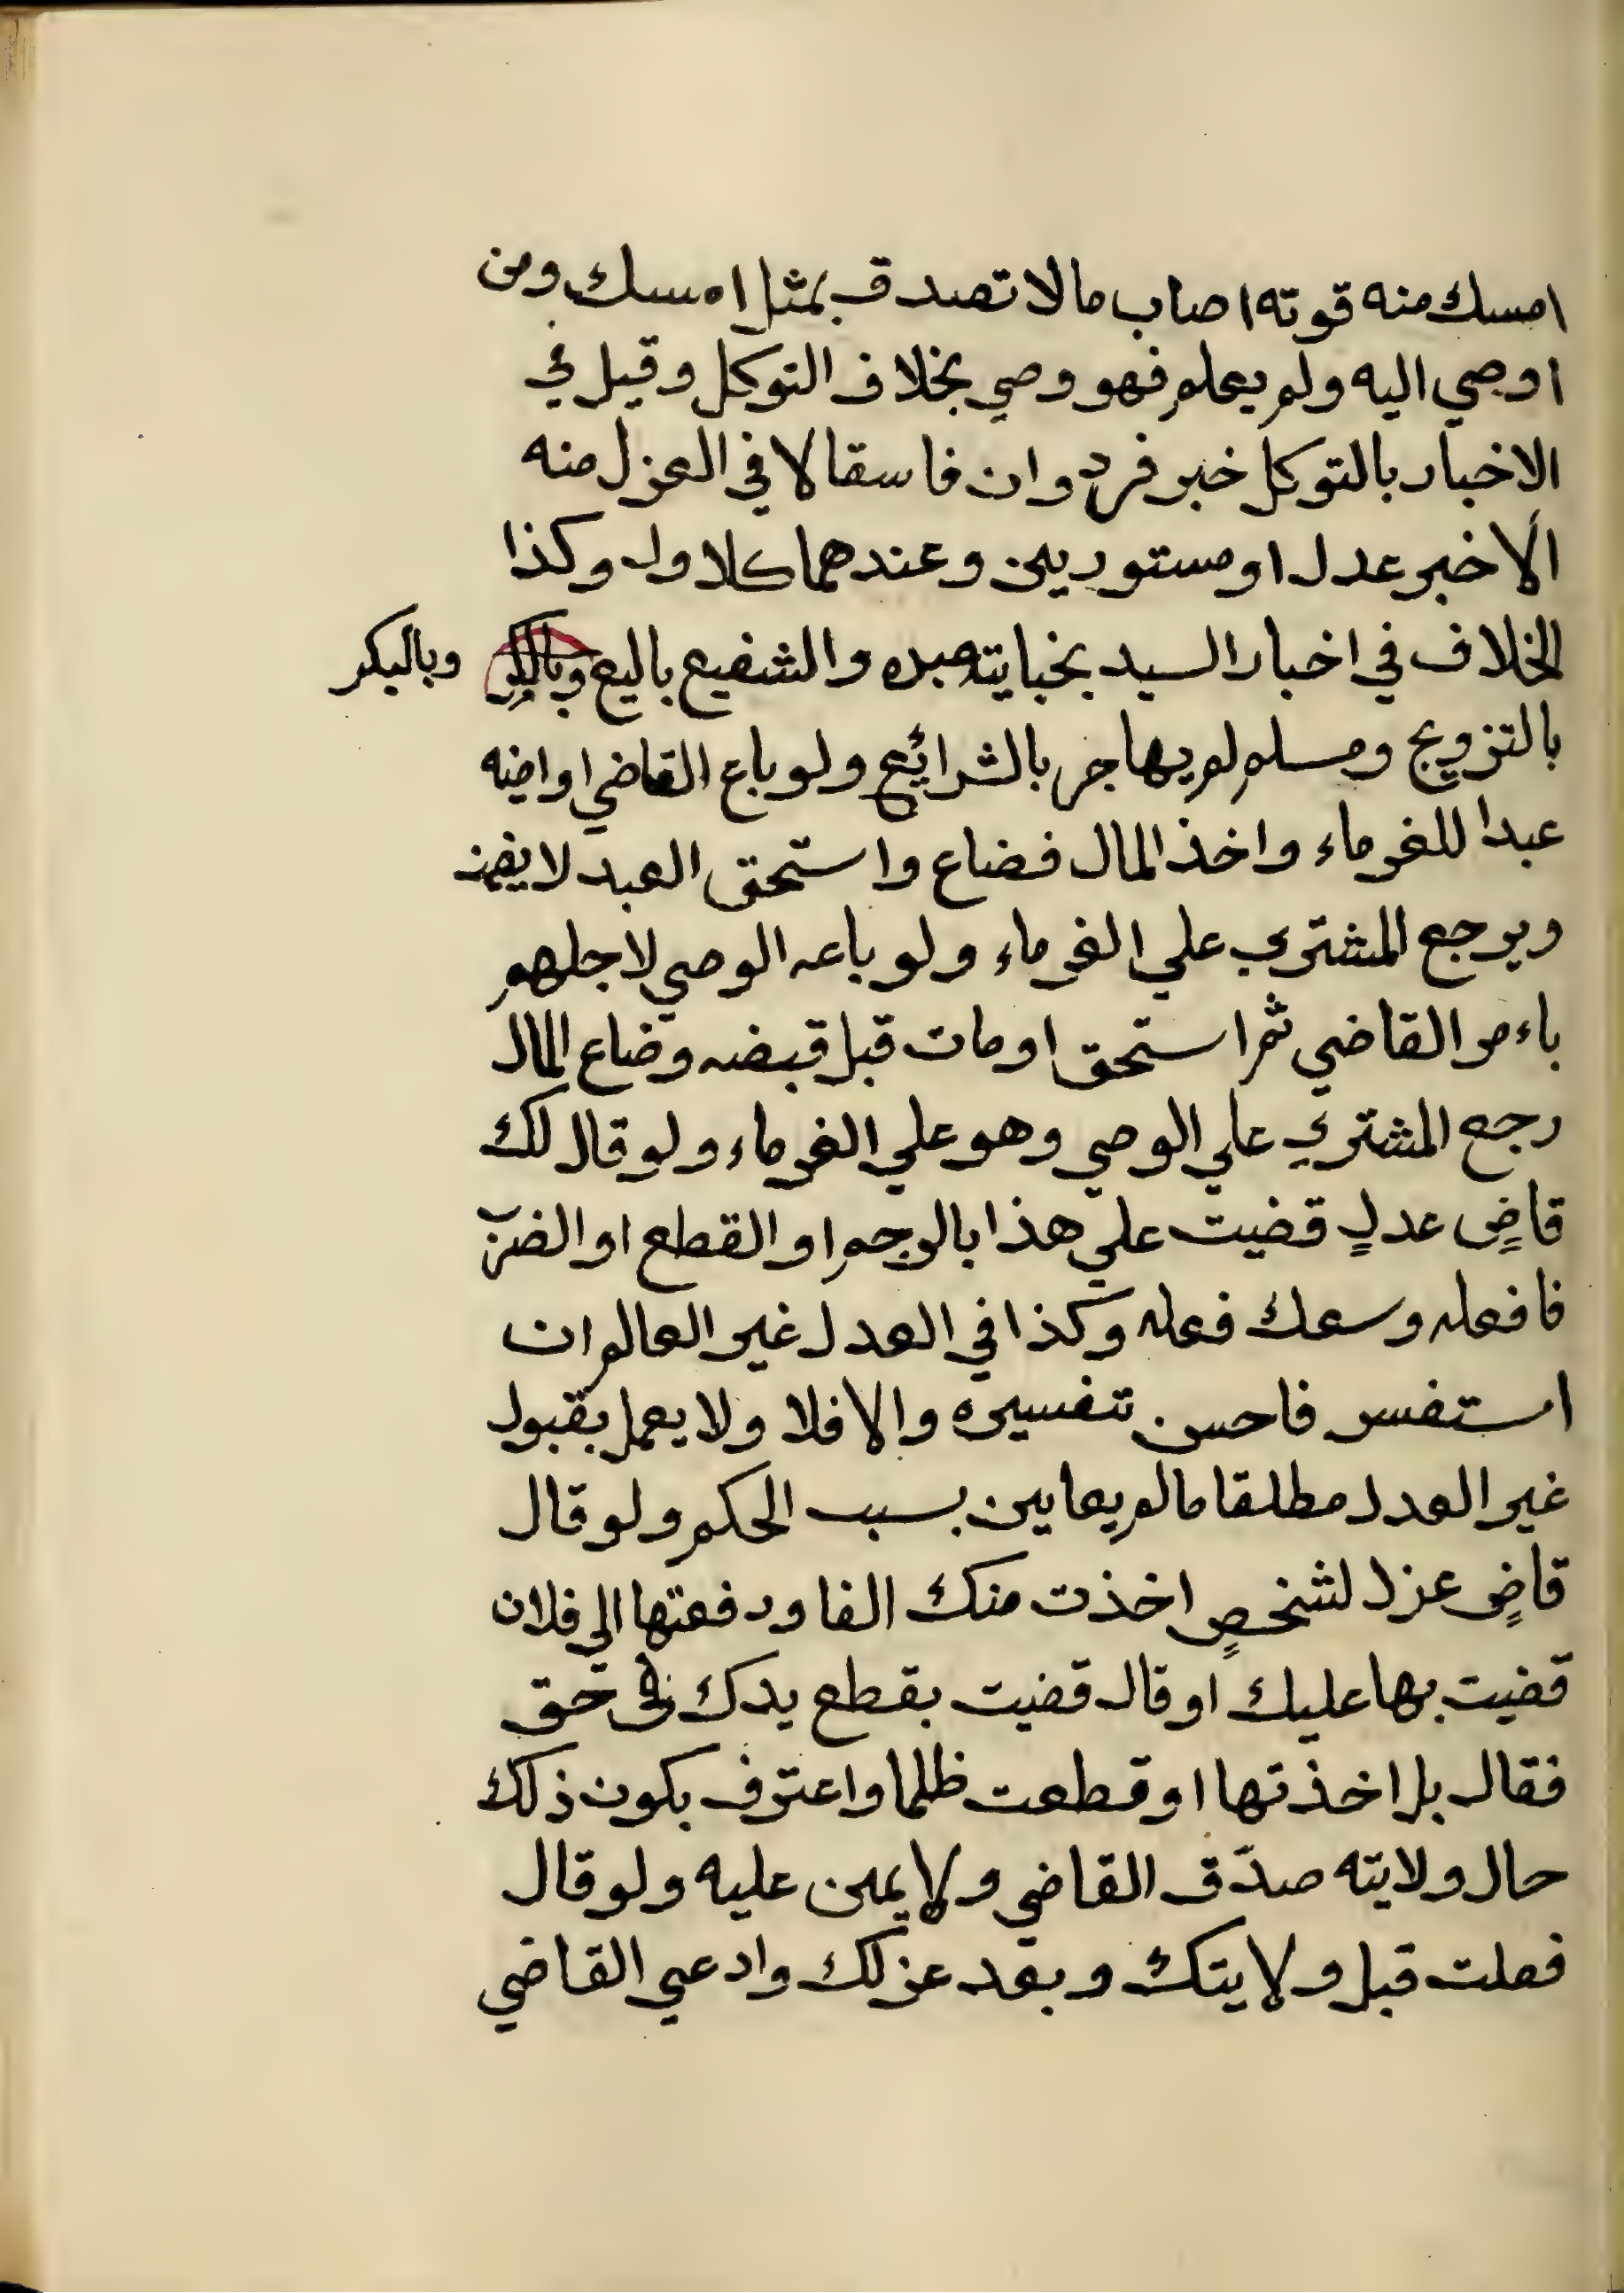 امسك منه قوته اصاب مالا تصدق بمثل امسك ومن
اوصي اليه ولم يعلم فهو وصي بخلاف التوكل وقيل في
الاخبار بالتوكل خبر فرد وان فاسقا لا في العزل منه
الا خبر عدل او مستورين وعندهما كلاول وكذا
الخلاف في اخبار السيد بخبايته عبده والشفيع باليع وبالبكر وبالبكر
بالتزويج ومسلم لم يهاجر بالشرائع ولو باع القاضي او امينه
عبدا للغرماء واخذ المال فضاع واستحق العبد لا يضمن
ويرجع المشتري علي الغرماء ولو باعه الوصي لاجلهم
باءمر القاضي ثم استحق او مات قبل قبضه وضاع المال
رجع المشتري علي الوصي وهو علي الغرماء ولو قال لك
قاضٍ عدلٍ قضيت علي هذا بالرجم او القطع او الضرب
فافعله وسعك فعله وكذا في العدل غير العالم ان
استفسر فاحسن تفسيره والا فلا ولا يعمل بقبول
غير العدل مطلقا مالم يعاين بسبب الحكم ولو قال
قاضٍ عزل لشخصٍ اخذت منك الفا ودفعتها الي فلان
قضيت بها عليك او قال قضيت بقطع يدك في حق
فقال بل اخذتها او قطعت ظلما واعترف بكون ذلك
حال ولايته صدّق القاضي ولا يمين عليه ولو قال
فعلت قبل ولايتك وبعد عزلك وادعي القاضي